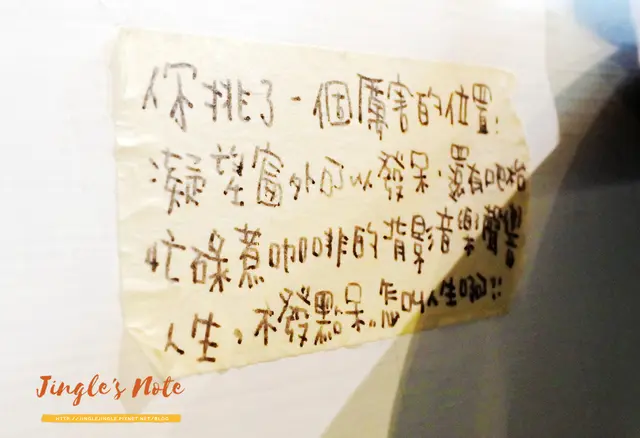 你挑了一個厲害的位置:
凝望窗外可以發呆,還有吧枱
忙碌煮咖啡的背影音樂聲響
人生,不發點呆,怎叫人生啊!!
Jingle's Note
HTTP://JINGLEJINGLE.PIXNET.NET/BLOG